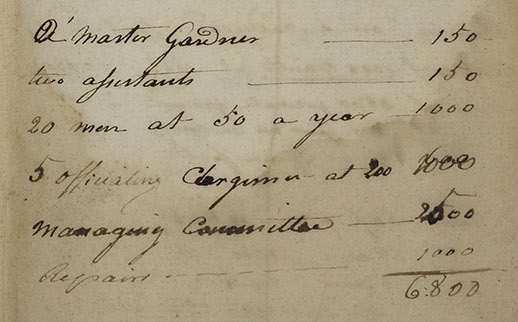 A' Master Gardner — 150
two assistants — 150
20 men at 50 a year — 1000
5 officiating Clergimen — at 200 1000
Managing Committee — 2500
Repairs - - - - 1000
6.800